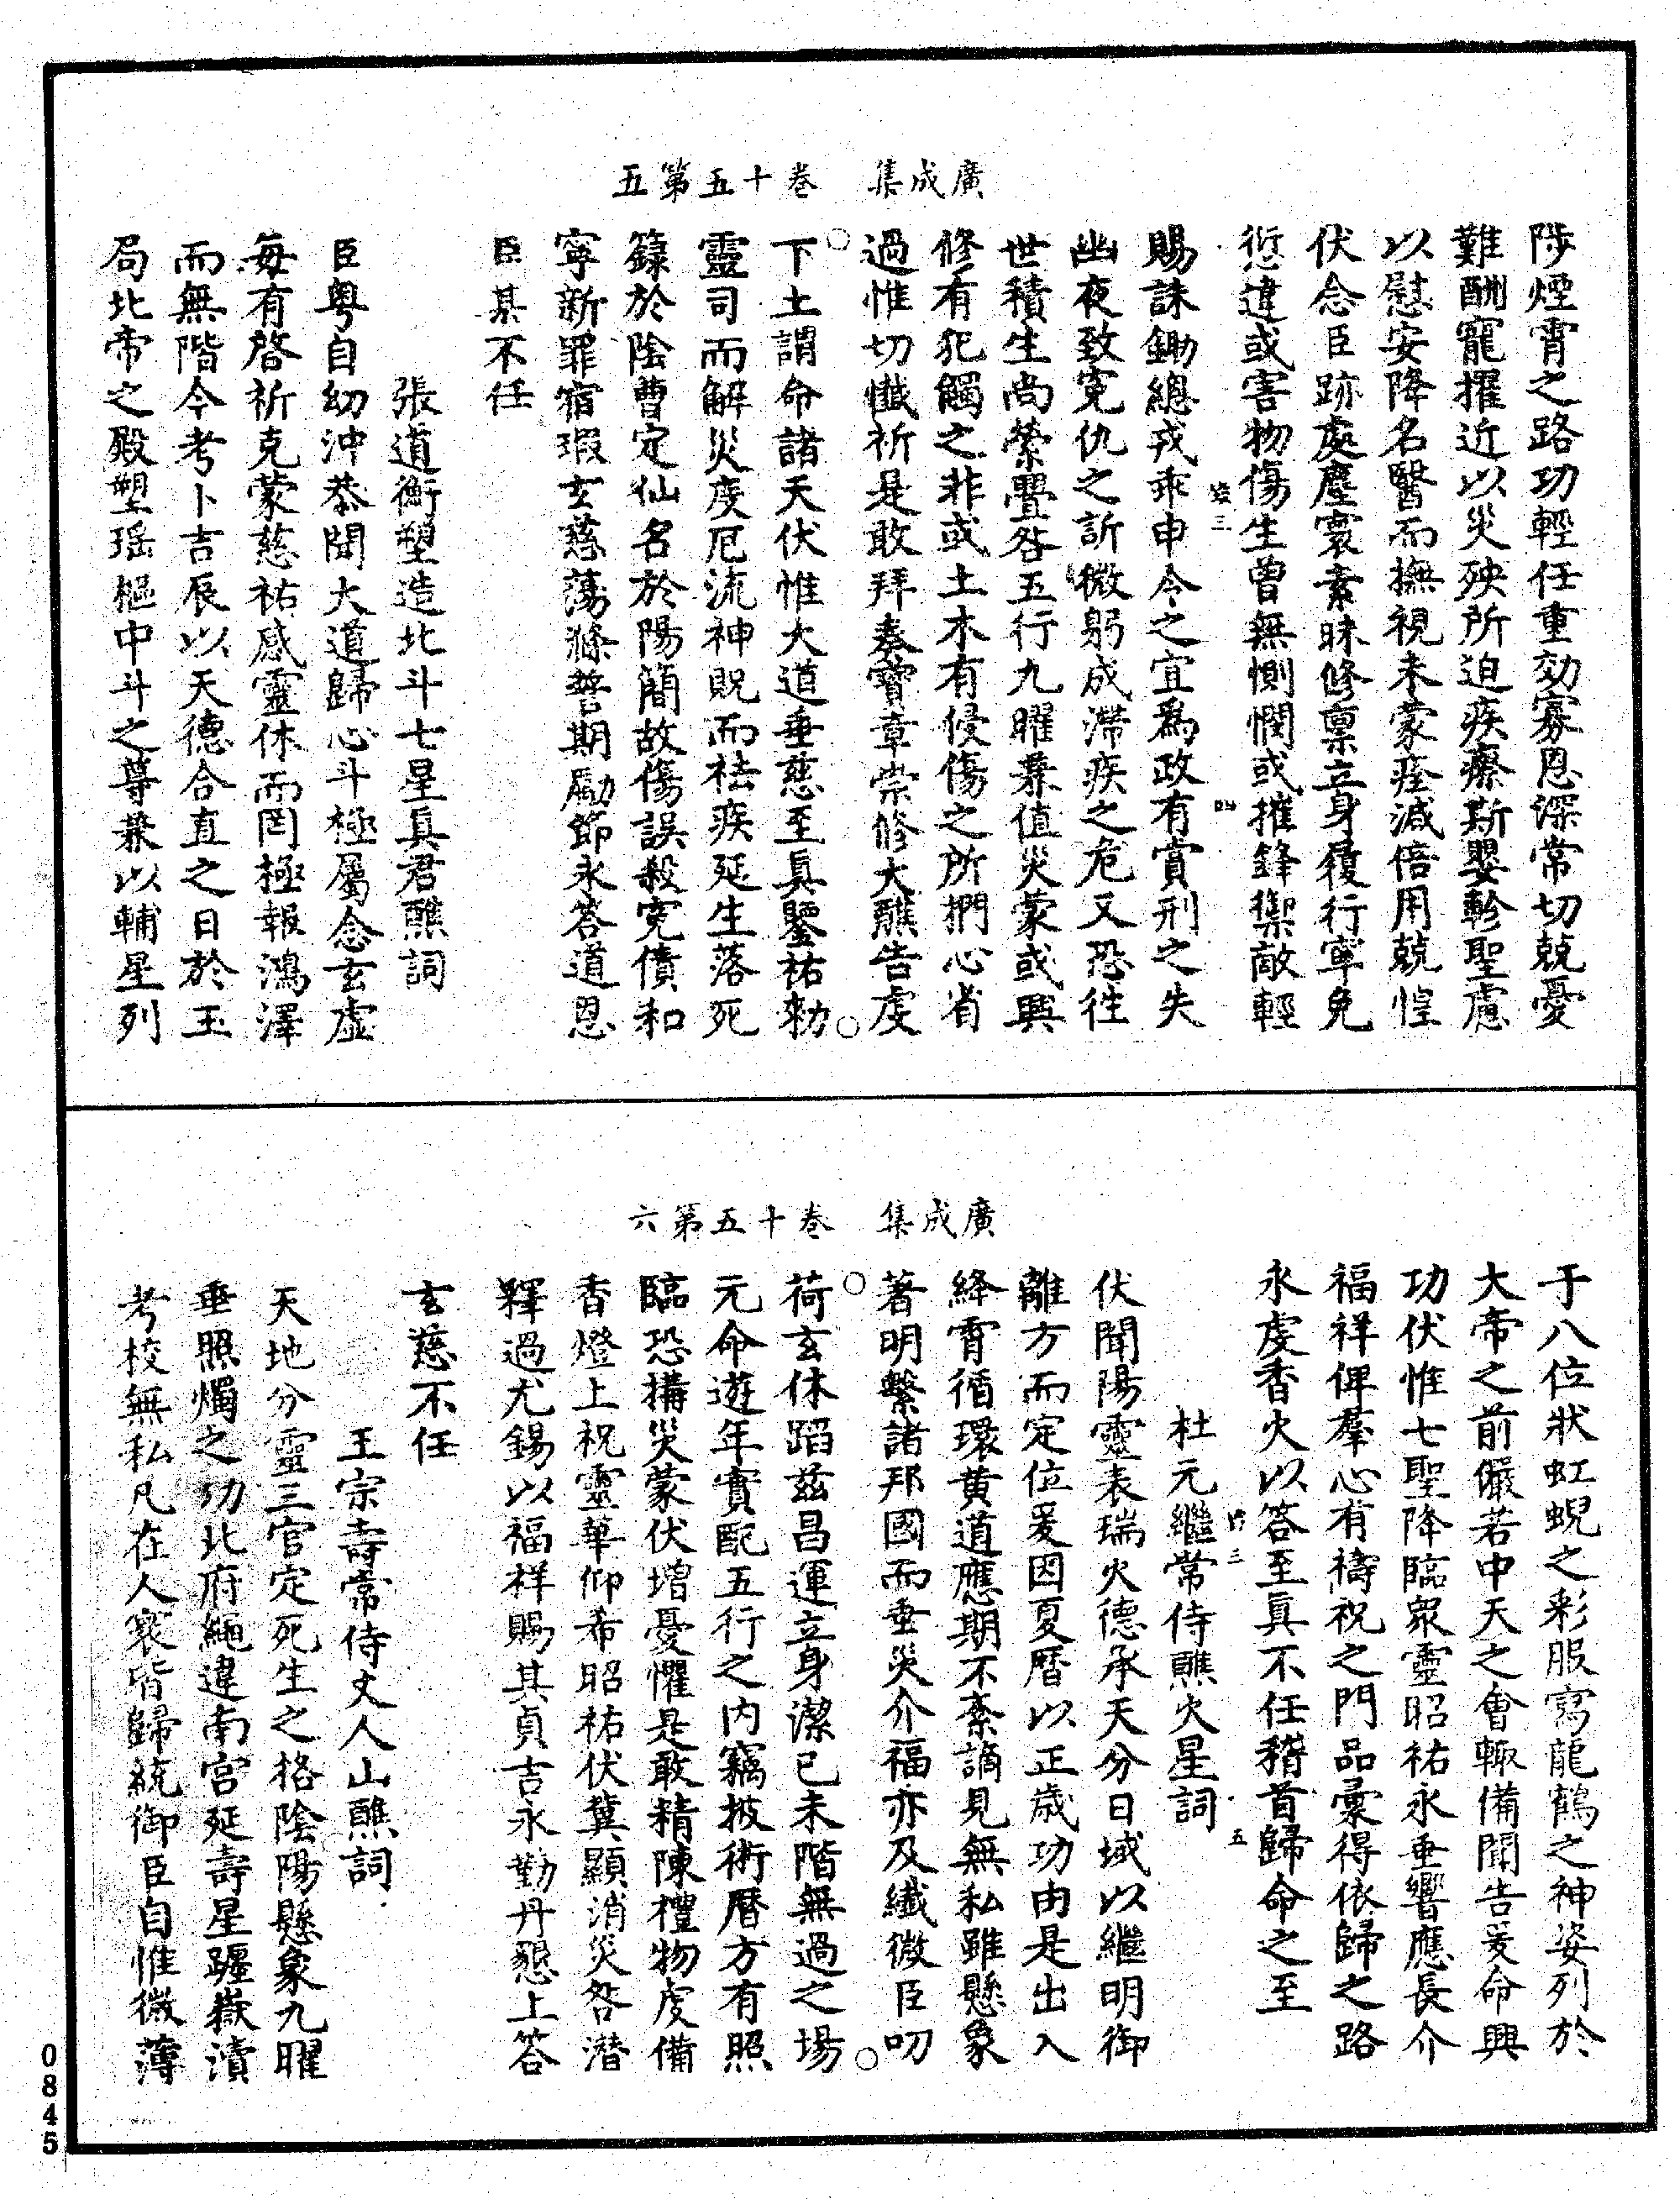 廣成集　卷十五第五
陟煙霄之路功輕任重効寡恩深常切兢憂
難酬寵擢近以災殃所迫疾瘵斯嬰軫聖慮
以慰安降名醫而撫視未蒙痊減倍用兢惶
伏念臣跡處塵寰素昧修稟立身履行寧免
愆違或害物傷生曾無惻憫或摧鋒禦敵輕
賜誅鋤總戎乖申令之宜爲政有賞刑之失
幽夜致冤仇之訴微躬成滯疾之危又恐往
世積生尚縈釁咎五行九曜兼值災蒙或興
修有犯觸之非或土木有侵傷之所捫心省
過惟切懺祈是敢拜奏寶章崇修大醮告虔
下土謂命諸天伏惟大道垂慈至真鑒祐勑
靈司而解災度厄流神貺而祛疾延生落死
籙於陰曹定仙名於陽簡故傷誤殺冤債和
寧新罪宿瑕玄慈蕩滌誓期勵節永答道恩
臣某不任
張道衡塑造北斗七星真君醮詞
臣粤自幼沖恭聞大道歸心斗極屬念玄虛
每有啓祈克蒙慈祐感靈休而罔極報鴻澤
而無階今考卜吉辰以天德合直之日於玉
局北帝之殿塑瑶樞中斗之尊兼以輔星列
廣成集　卷十五第六
于八位狀虹蜺之彩服寫龍鶴之神姿列於
大帝之前儼若中天之會輙備聞告爰命興
功伏惟七聖降臨衆靈昭祐永垂響應長介
福祥俾羣心有禱祝之門品彙得依歸之路
永虔香火以答至真不任稽首歸命之至
杜元繼常侍醮火星詞
伏聞陽靈表瑞火德承天分日域以繼明御
離方而定位爰因夏曆以正歲功由是出入
絳霄循環黄道應期不紊謫見無私雖懸象
著明繫諸邦國而垂災介福亦及纖微臣叨
荷玄休蹈兹昌運立身潔已未階無過之場
元命遊年實配五行之內竊披術曆方有照
臨恐搆災蒙伏增憂懼是敢精陳禮物虔備
香燈上祝靈華仰希昭祐伏冀顯消災咎潛
釋過尤錫以福祥賜其貞吉永勤丹懇上答
玄慈不任
王宗壽常侍丈人山醮詞
天地分靈三官定死生之格陰陽懸象九曜
垂照燭之功北府繩違南宫延壽星躔嶽瀆
考校無私凡在人寰皆歸統御臣自惟微薄
0845